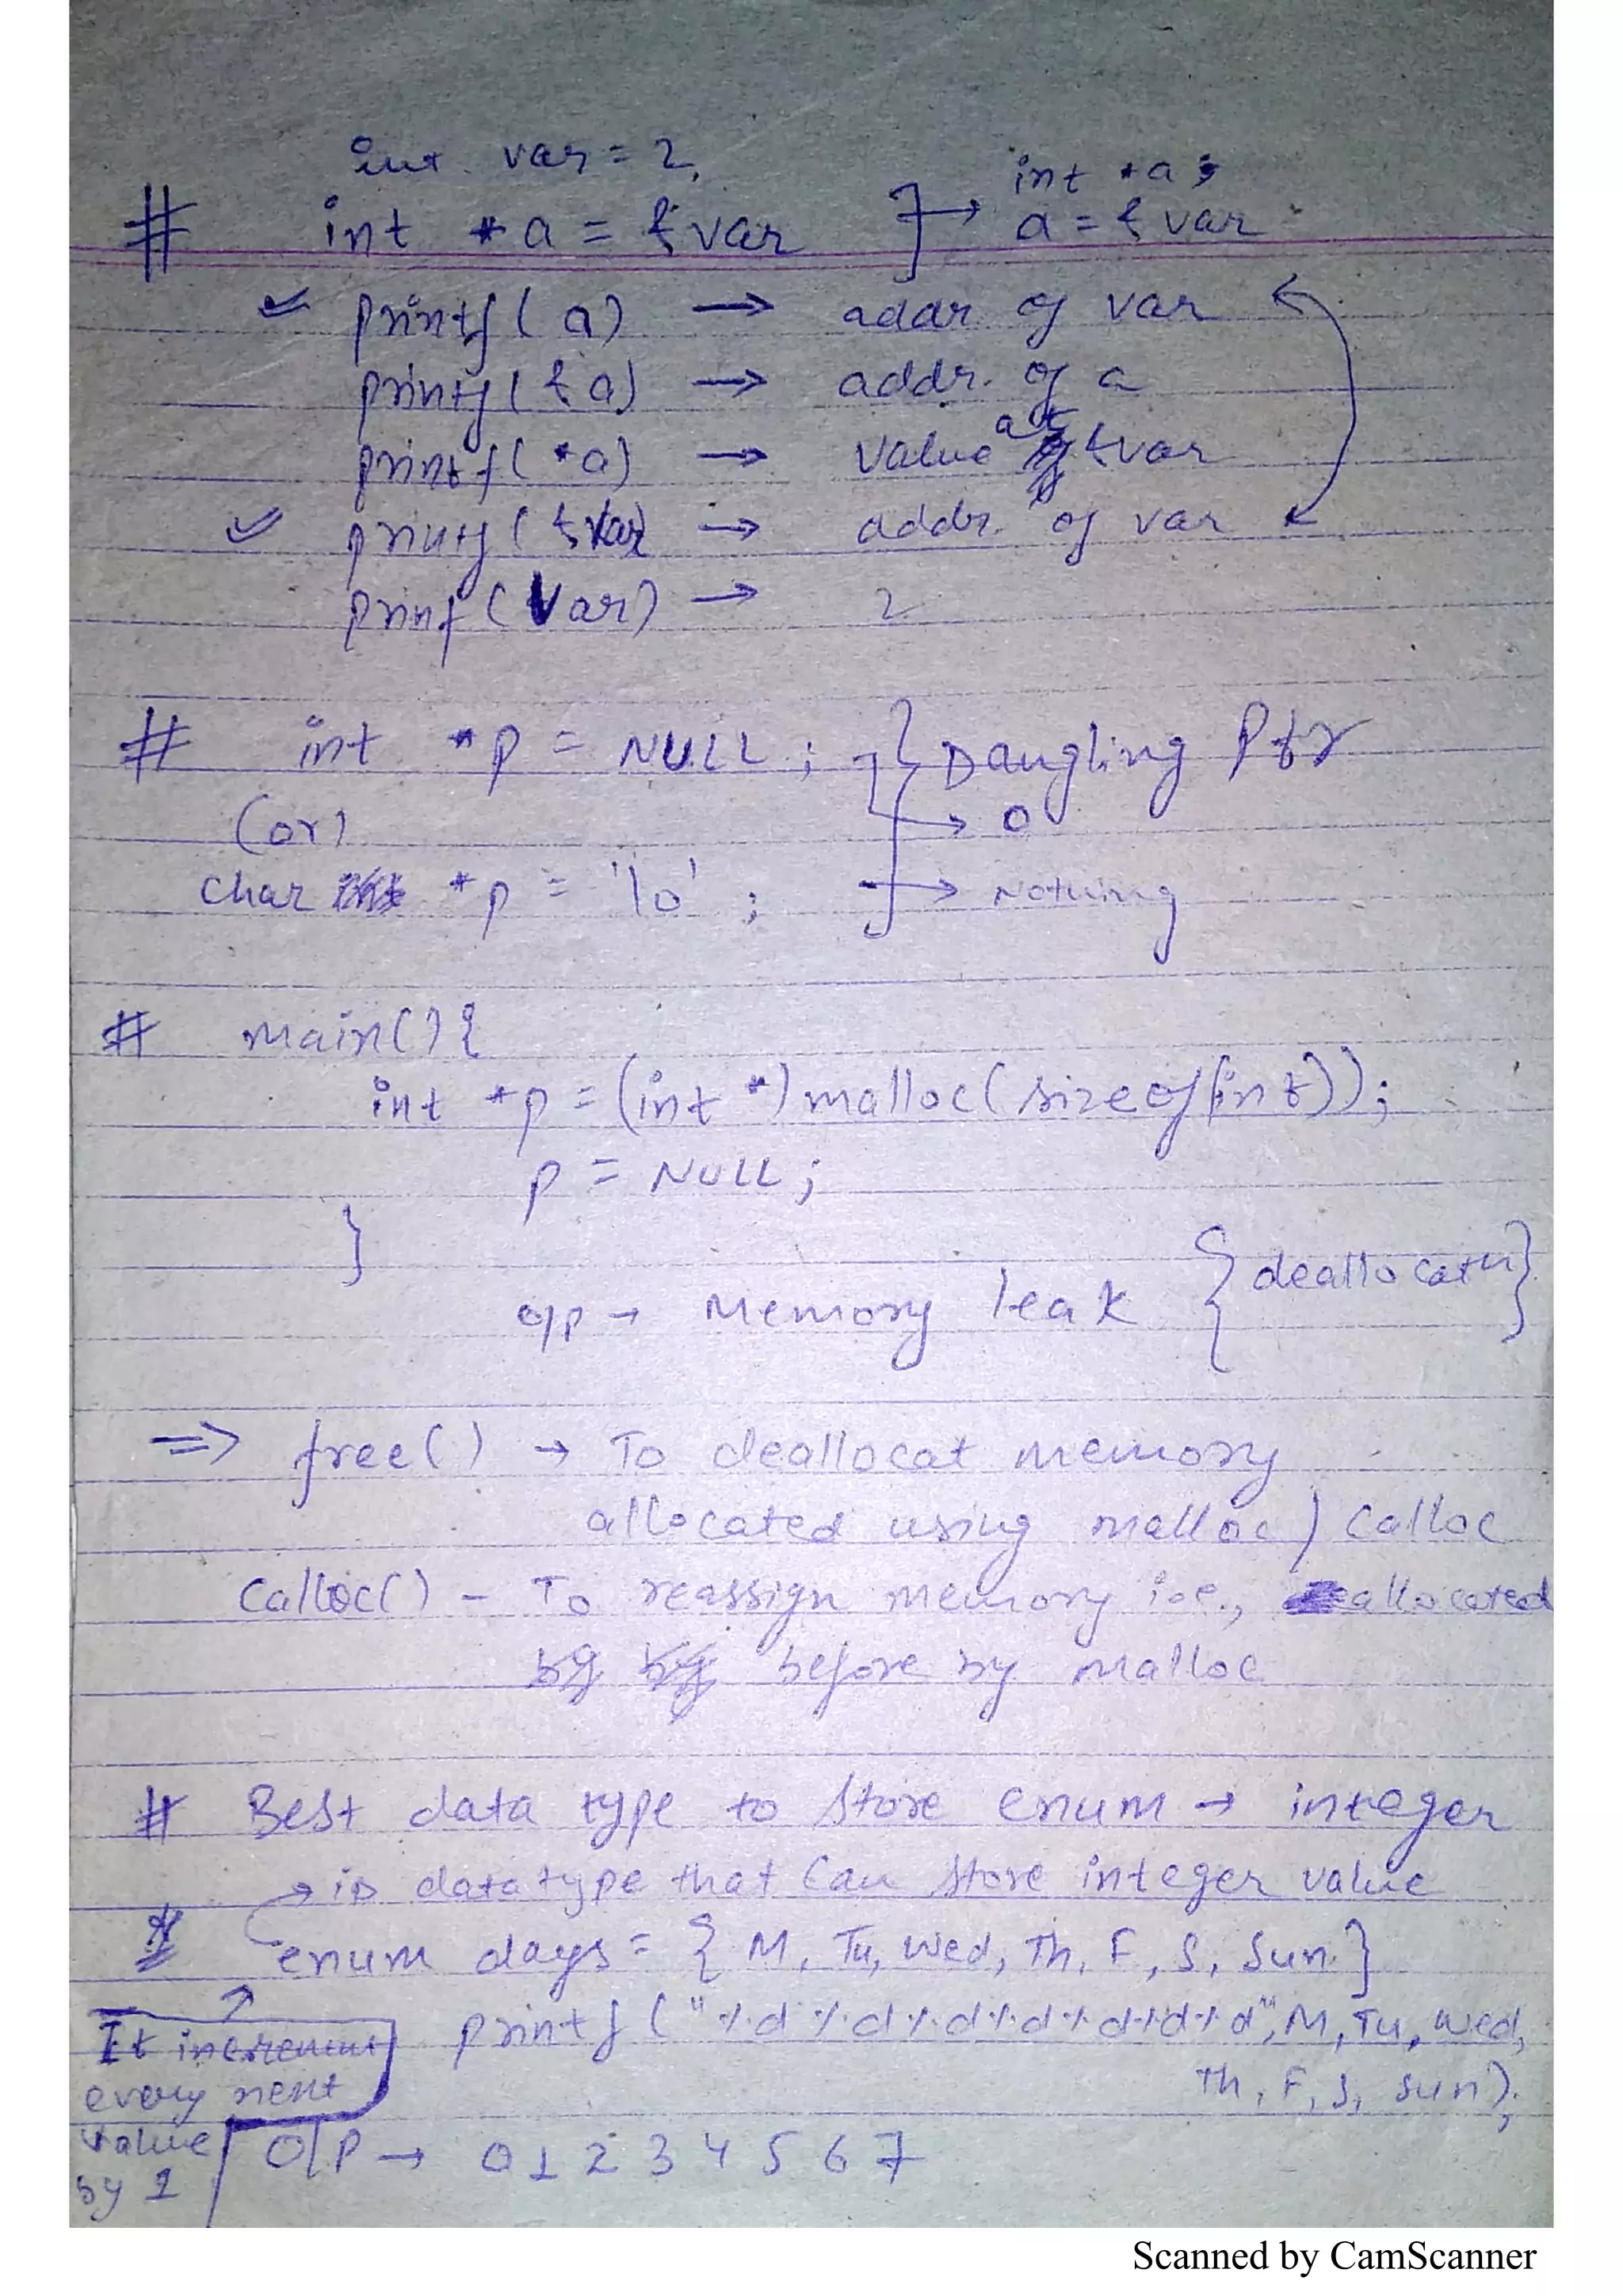 int var = 2,
# int *a = &var ] → int *a;
a = &var
✓ printf(a) → addr of var
printf(&a) → addr. of a
printf(*a) → value at &var
✓ printf(&var) → addr. of var
prinf(var) → 2
# int *p = NULL; } Dangling Ptr
(or) → 0
char *p = '\0'; → Nothing
# main(){
int *p = (int *) malloc(sizeof(int));
p = NULL;
}
o/p → Memory leak { deallocatn }
=> free() → To deallocat memory
allocated using malloc / calloc
Calloc() - To reassign memory i.e., allocated
before by malloc
# Best data type to store enum → integer
→ is datatype that can store integer value
* enum days = { M, Tu, Wed, Th, F, S, Sun. }
printf("%d %d %d %d %d %d %d", M, Tu, Wed,
Th, F, S, Sun);
It increment
every next
value
by 1
O/P → 0 1 2 3 4 5 6 7
Scanned by CamScanner